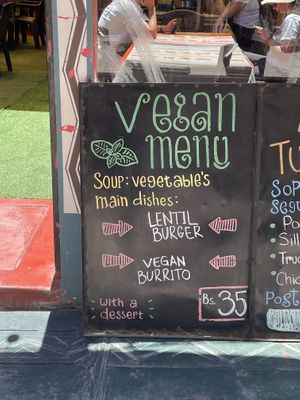 vegan
menu
SOUP: vegetable's
main dishes:
LENTIL
BURGER
VEGAN
BURRITO
with a
dessert
Bs. 35
TU
SOP
Segu
Po
Sill
Truc
Chic
Post